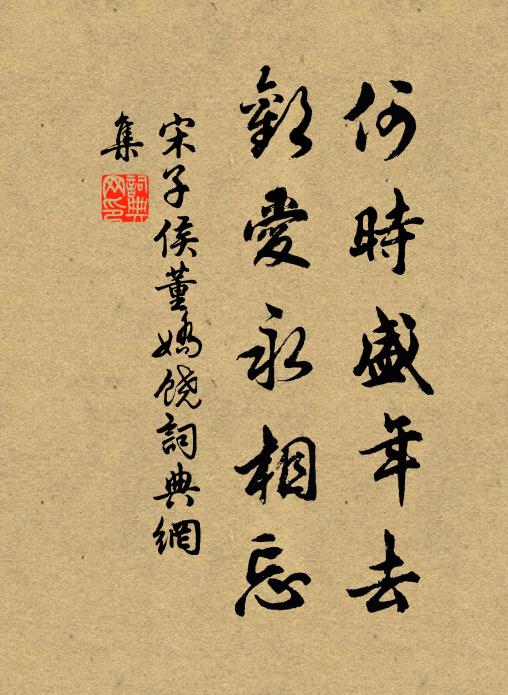 何時盛年去
歡愛永相忘
宋子侯董嬌饒詞典網
集
詞典
网印